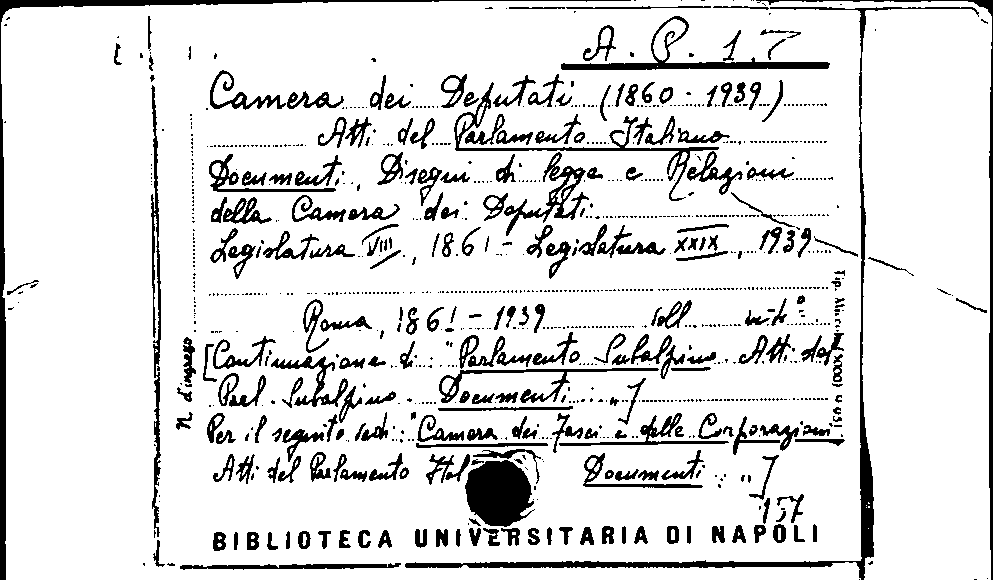 A. P. 17
Camera dei Deputati (1860 - 1939)
Atti del Parlamento Italiano.
Documenti. Disegni di legge e Relazioni
della Camera dei Deputati.
Legislatura VIII, 1861 - Legislatura XXIX, 1939
Roma, 1861 - 1939
[Continuazione di: "Parlamento Subalpino. Atti del
Parl. Subalpino. Documenti ..."]
Per il seguito vedi: "Camera dei Fasci e delle Corporazioni
Atti del Parlamento Ital Documenti ..."]
157
BIBLIOTECA UNIVERSITARIA DI NAPOLI
N. d'ingresso
Tip.